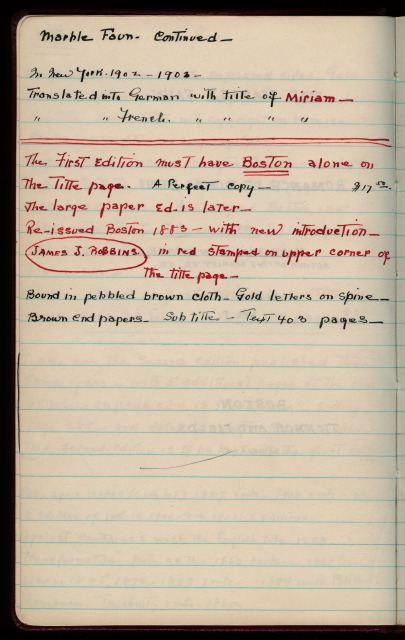 Marble Faun - Continued -
In New York - 1902 - 1903 -
Translated into German with title of Miriam -
" " French. " " " "
The First Edition must have Boston alone on
the title page. A Perfect copy - $17 00
The large paper Ed. is later -
Re-issued Boston 1883 - with new introduction -
JAMES S. ROBBINS. in red stamped on upper corner of
the title page -
Bound in pebbled brown cloth - Gold letters on spine -
Brown end papers - Sub title - Text 403 pages -